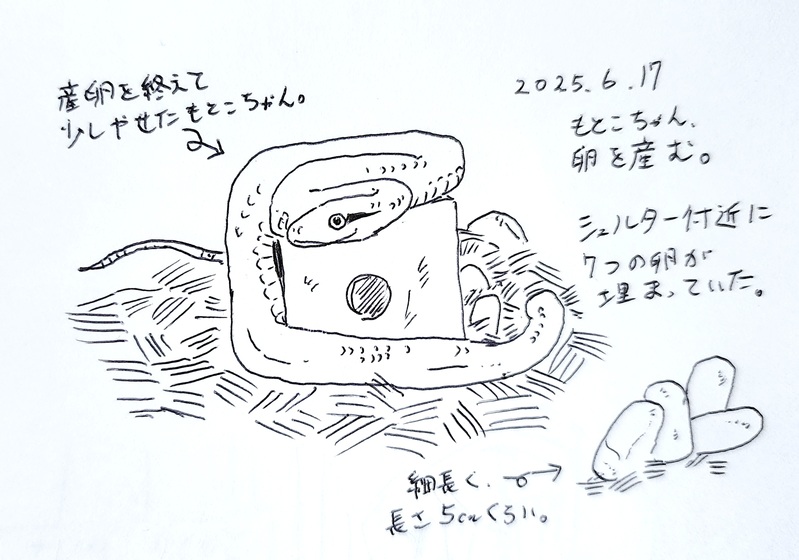 産卵を終えて
少しやせたもとこちゃん。
2025.6.17
もとこちゃん、
卵を産む。
シェルター付近に
7つの卵が
埋まっていた。
細長く、
長さ5cmくらい。